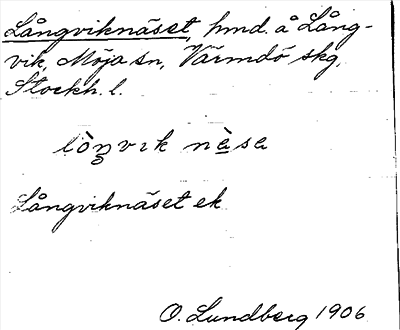 Långviknäset, hmd. å Lång-
vik, Möja sn, Värmdö skg,
Stockh. l.
lòŋvık nὰsa
Långviknäset ek
O. Lundberg 1906